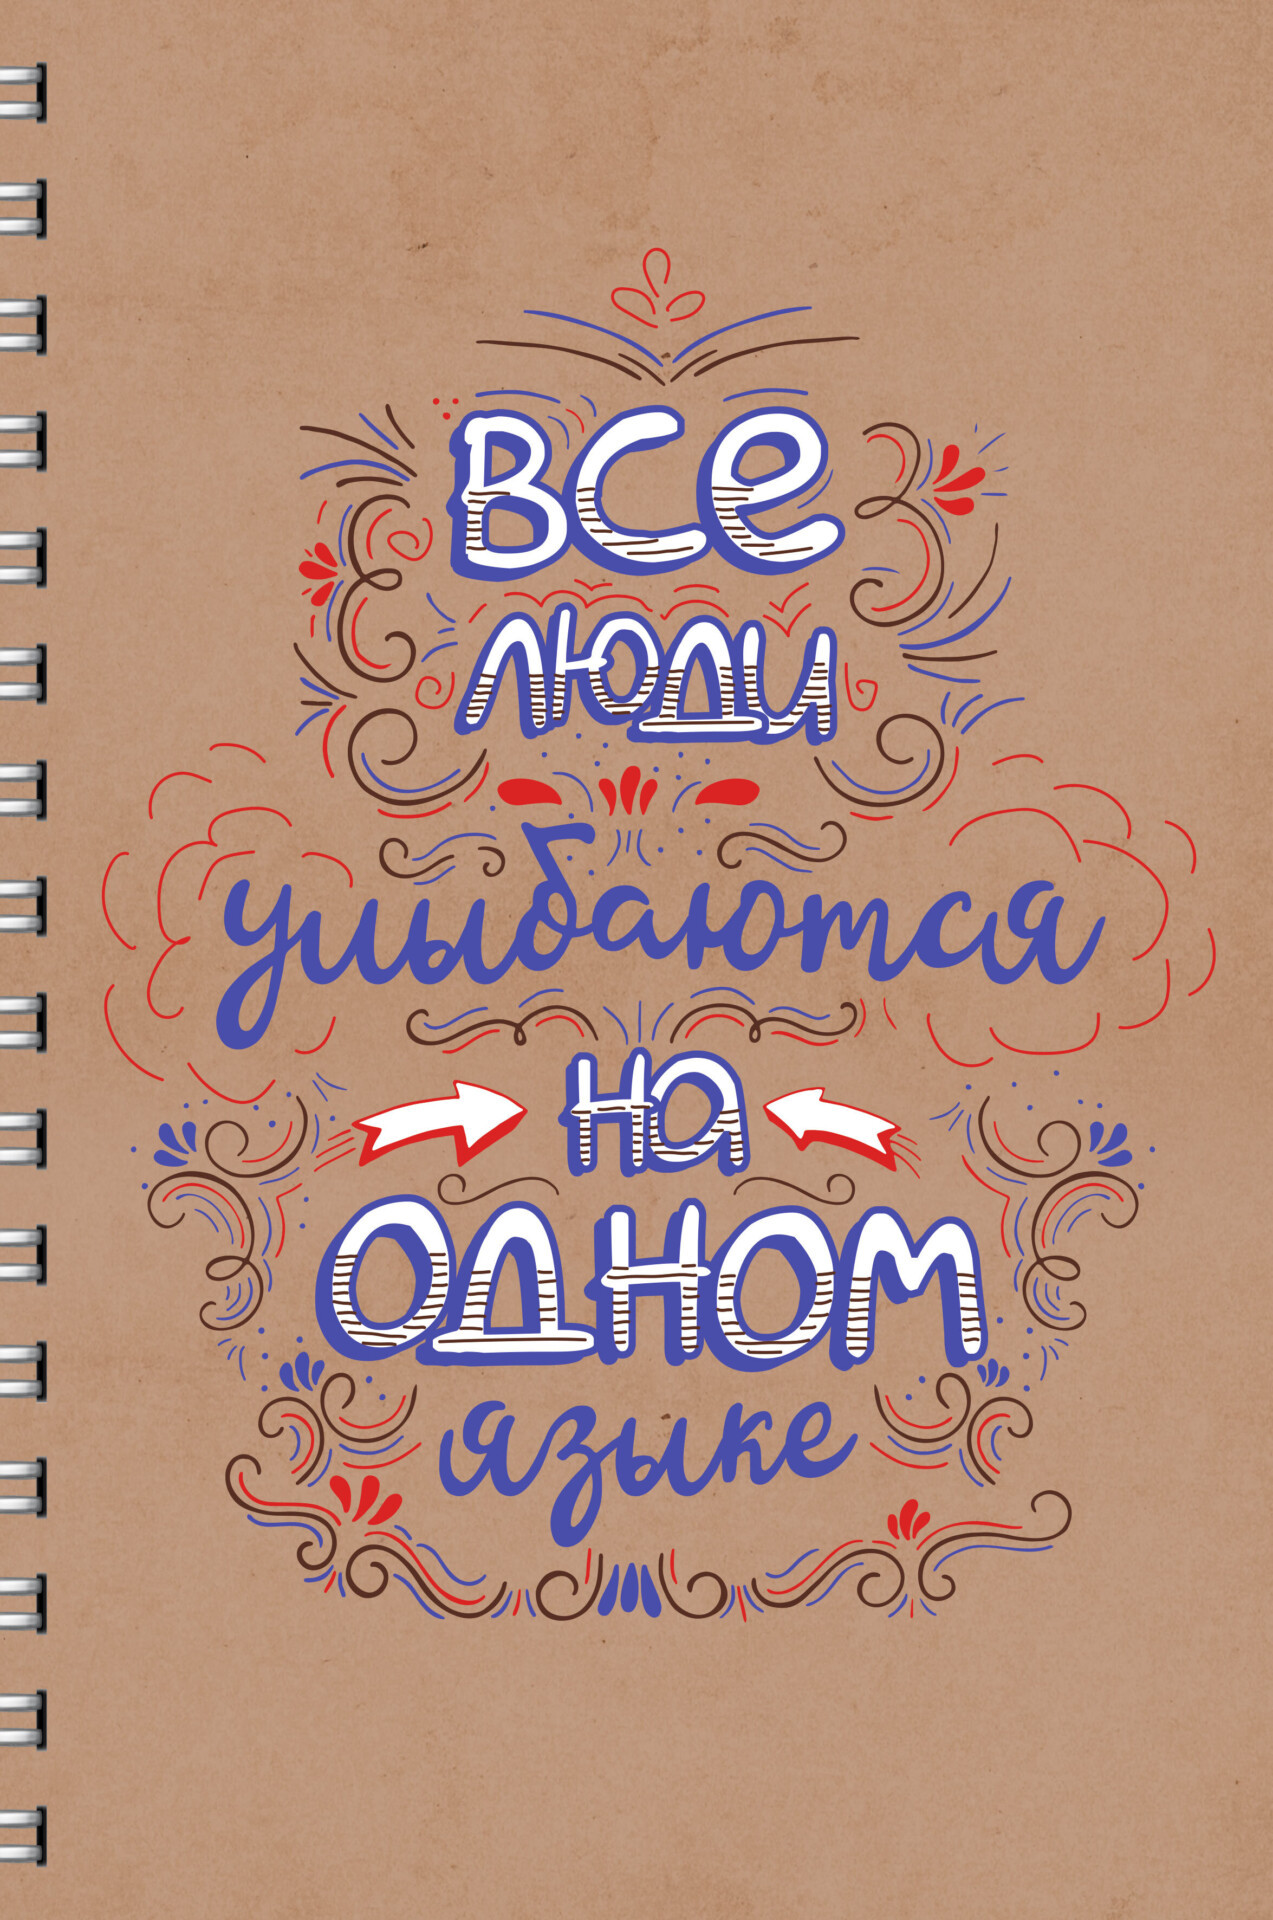 все
люди
улыбаются
на
одном
языке